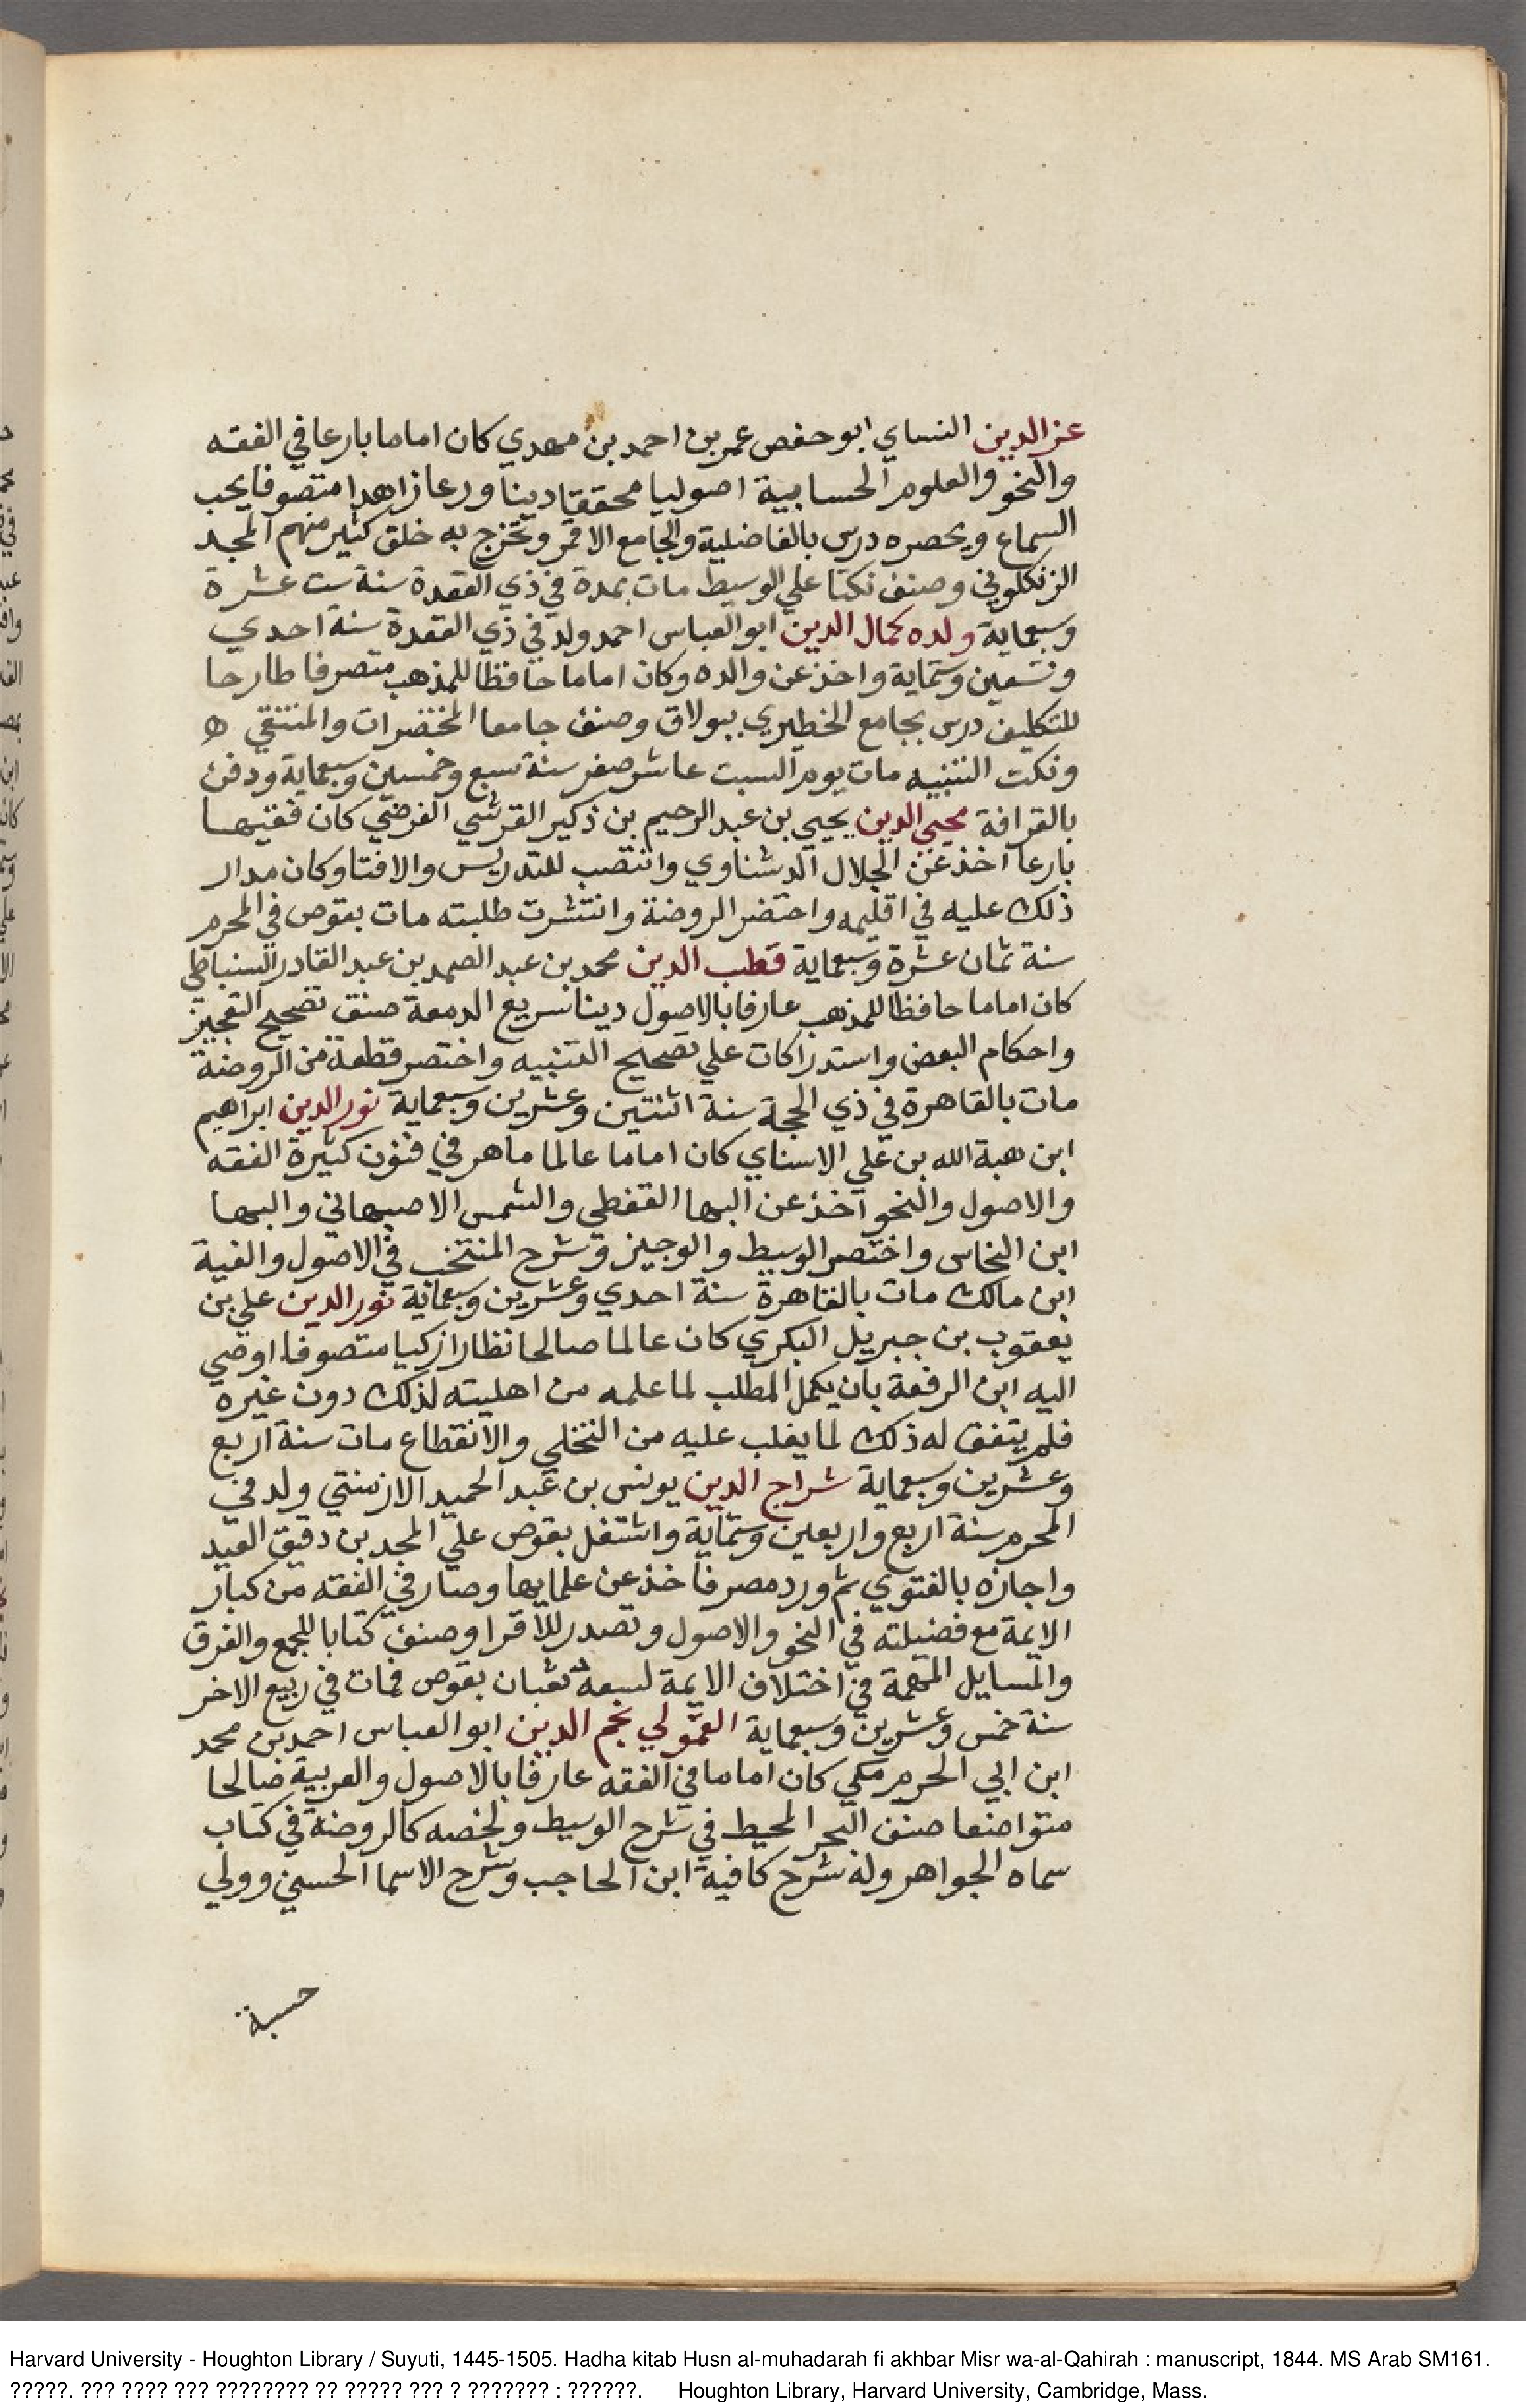 عز الدين النساي ابو حفص عمر بن احمد بن مهدي كان اماما بارعا في الفقه
والنحو والعلوم الحسابية اصوليا محققا دينا ورعا زاهدا متصوفا يحب
السماع ويحصره درس بالفاضلية والجامع الاقمر وتخرج به خلق كثير منهم المجد
الزنكلوني وصنف نكتا علي الوسيط مات بمدة في ذي القعدة سنة ست عشرة
وسبعماية ولده كمال الدين ابو العباس احمد ولد في ذي القعدة سنة احدي
وتسعين وستماية واخذ عن والده وكان اماما حافظا للمذهب متصرفا طارحا
للتكليف درس بجامع الخطيري ببولاق وصنف جامعا المختضرات والمنتقي ه
ونكت التنبيه مات يوم السبت عاشر صفر سنة سبع وخمسين وسبعماية ودفن
بالقرافة محيي الدين يحيي بن عبد الرحيم بن ذكير القرشي الفرضي كان فقيها
بارعا اخذ عن الجلال الدشناوي وانتصب للتدريس والافتا وكان مدار
ذلك عليه في اقليمه واختضر الروضة وانتشرت طلبته مات بقوص في المحرم
سنة ثمان عشرة وسبعماية قطب الدين محمد بن عبد الصمد بن عبد القادر السنباطي
كان اماما حافظا للمذهب عارفا بالاصول دينا سريع الدمعة صنف تصحيح التعجيز
واحكام البعض واستدراكات علي تصحيح التنبيه واختصر قطعة من الروضة
مات بالقاهرة في ذي الحجة سنة اثنتين وعشرين وسبعماية نور الدين ابراهيم
ابن هبة الله بن علي الاسناي كان اماما عالما ماهر في فنون كثيرة الفقه
والاصول والنحو اخذ عن البها القفطي والشمس الاصبهاني والبها
ابن النحاس واختصر الوسيط والوجيز وشرح المنتخب في الاصول والفية
ابن مالك مات بالقاهرة سنة احدي وعشرين وسبعماية نور الدين علي بن
يعقوب بن جبريل البكري كان عالما صالحا نظارا زكيا متصوفا اوصي
اليه ابن الرفعة بان يكمل المطلب لما علمه من اهليته لذلك دون غيره
فلم يتفق له ذلك لما يغلب عليه من التخلي والانقطاع مات سنة اربع
وعشرين وسبعماية شراج الدين يونس بن عبد الحميد الارمنتي ولد في
المحرم سنة اربع واربعين وستماية واشتغل بقوص علي المجد بن دقيق العيد
واجازه بالفتوي ثم ورد مصر فاخذ عن علمايها وصار في الفقه من كبار
الايمة مع فضيلته في النحو والاصول وتصدر للاقرا وصنف كتابا للجمع والفرق
والمسايل المهمة في اختلاف الايمة لسعة ثعبان بقوص فمات في ربيع الاخر
سنة خمس وعشرين وسبعماية القمولي نجم الدين ابو العباس احمد بن محمد
ابن ابي الحرم مكي كان اماما في الفقه عارفا بالاصول والعربية صالحا
متواضعا صنف البحر المحيط في شرح الوسيط ولخصه كالروضة في كتاب
سماه الجواهر وله شرح كافية ابن الحاجب وشرح الاسما الحسني وولي
حسبة
Harvard University - Houghton Library / Suyuti, 1445-1505. Hadha kitab Husn al-muhadarah fi akhbar Misr wa-al-Qahirah : manuscript, 1844. MS Arab SM161.
?????. ??? ???? ??? ???????? ?? ????? ??? ? ??????? : ??????. Houghton Library, Harvard University, Cambridge, Mass.